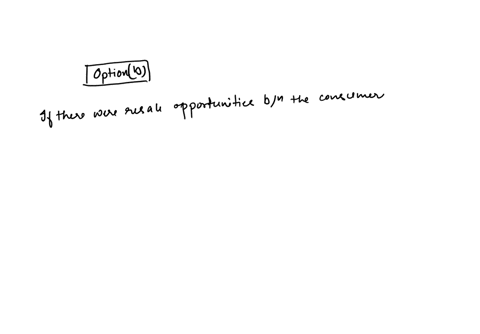 Option(b)
If there were resale opportunities b/n the consumer